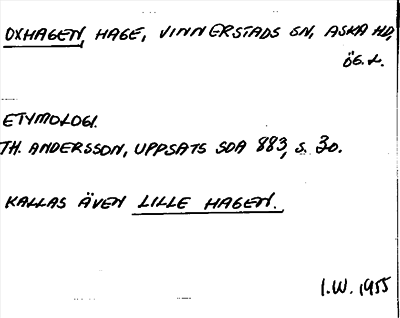 OXHAGEN, HAGE, VINNERSTADS SN, ASKA HD,
ÖG. L.
ETYMOLOGI.
TH. ANDERSSON, UPPSATS SDA 883, S. 30.
KALLAS ÄVEN LILLE HAGEN.
I.W. 1955